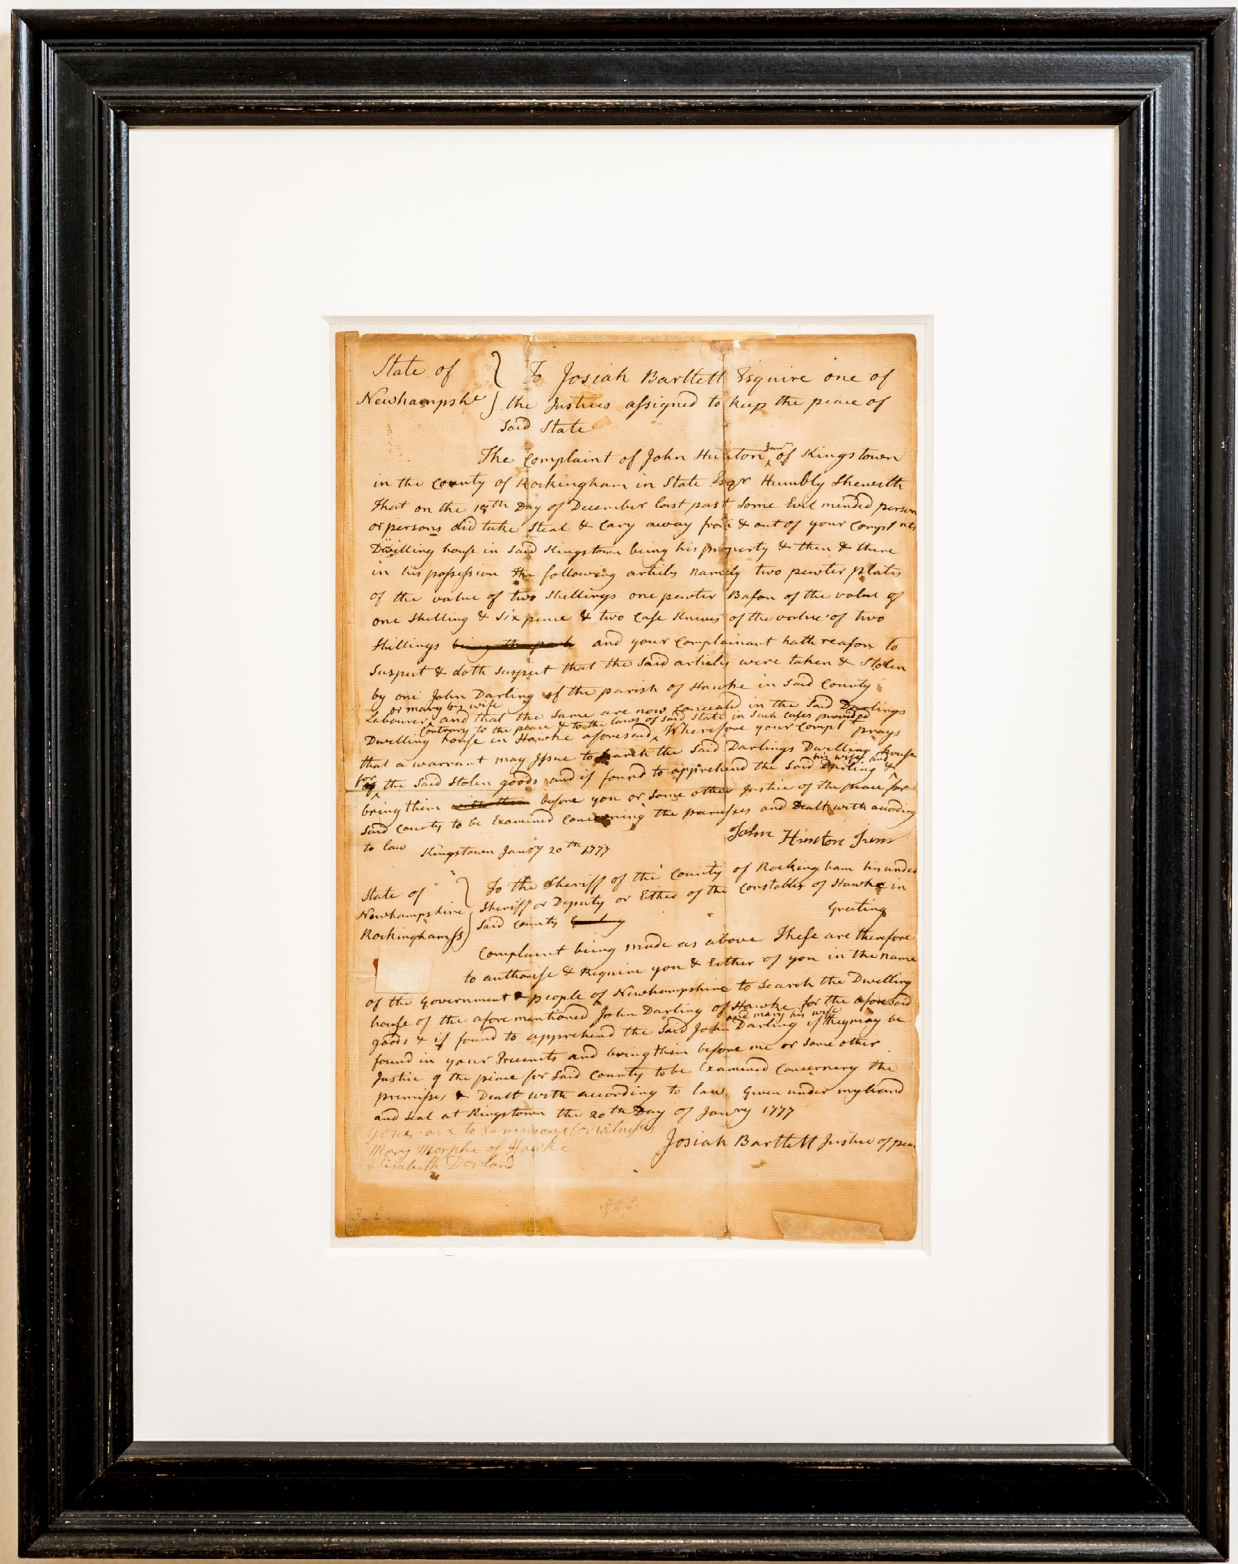 State of } To Josiah Bartlett Esquire one of
Newhampshr } the Justices assigned to keep the peace of
Said State
The Complaint of John Huston Junr of Kingstown
in the County of Rockingham in State Esqr Humbly Sheweth
that on the 18th Day of December last past Some Evil minded person
or persons did take Steal & Cary away from & out of your Complts
Dwelling house in Said Kingstown being his property & then & there
in his possession the following articles namely two pewter plates
of the value of two Shillings one pewter Bason of the value of
one Shilling & Six pence & two Case Knives of the value of two
Shillings and your Complainant hath reason to
Suspect & doth Suspect that the Said articles were taken & Stolen
by one John Darling of the parish of Hawke in Said County
or mary his wife
Labourer and that the Same are now Conceald in the Said Darlings
Contrary to the peace & to the laws of Said State in Such Cases provided
Dwelling house in Hawke aforesaid Wherefore your Complt prays
that a warrant may Issue to Search the Said Darlings Dwelling house
for the Said Stolen goods and if found to apprehend the Said Darling &
his wife and
bring them before you or Some other Justice of the peace for
Said County to be Examined Concerning the premises and Dealt with according
to law Kingstown Janry 20th 1777
John Huston Junr
State of } To the Sheriff of the County of Rockingham his under
Newhampshire } Sheriff or Deputy or Either of the Constables of Hawke in
Rockingham Ss } Said County Greeting
Complaint being made as above These are therefore
to authorise & Require you & Either of you in the name
of the Government & people of Newhampshire to Search the Dwelling
house of the afore mentioned John Darling of Hawke for the aforesaid
and mary his wife
goods & if found to apprehend the Said John Darling if they may be
found in your Precincts and bring them before me or Some other
Justice of the peace for Said County to be Examined Concerning the
premises & Dealt with according to law Given under my hand
and Seal at Kingstown the 20th Day of Janry 1777
you are to Summons for witness
Josiah Bartlett Justice of peace
Mary Morphe of Hawke
Elisabeth Dorland